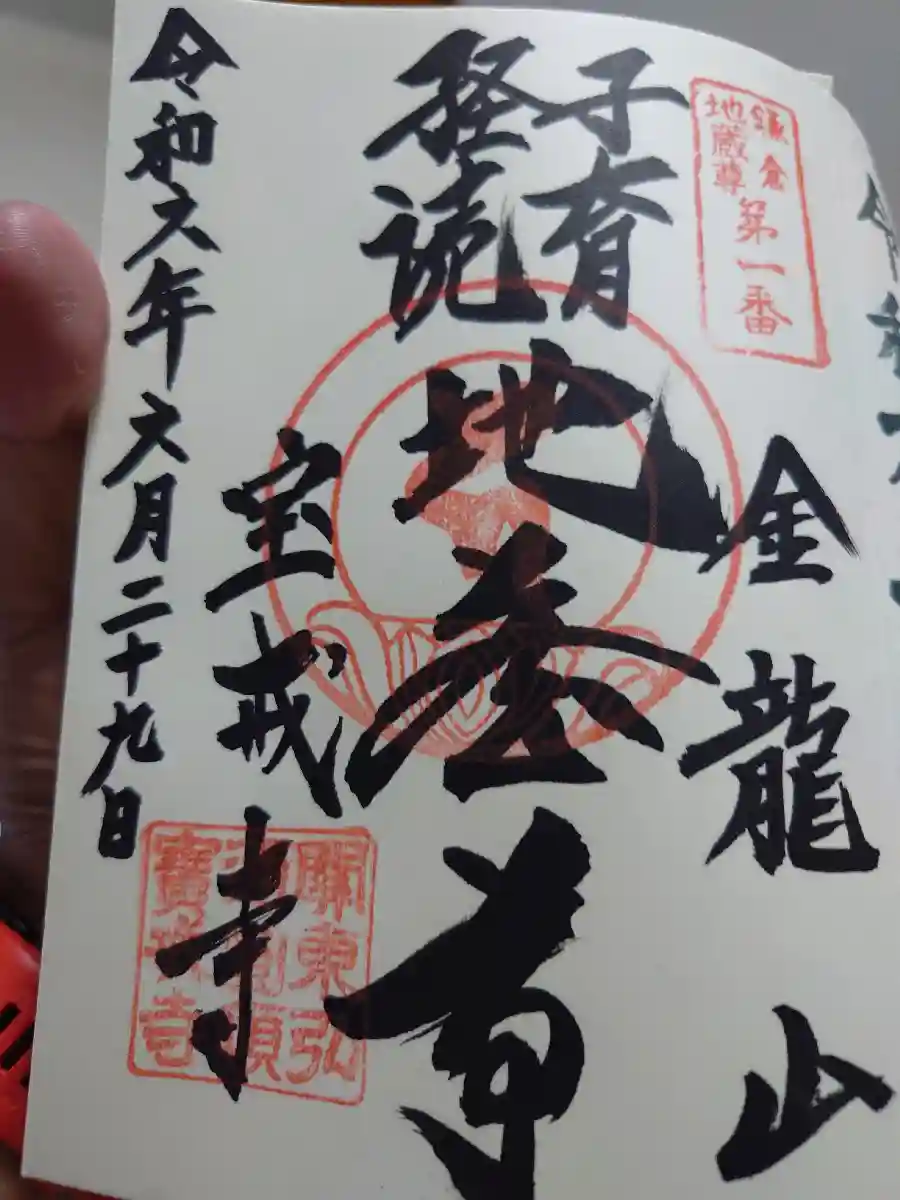 鎌倉
地蔵尊
第一番
金龍山
子育
経読
地蔵尊
宝戒寺
令和六年六月二十九日
關東弘
寶戒寺